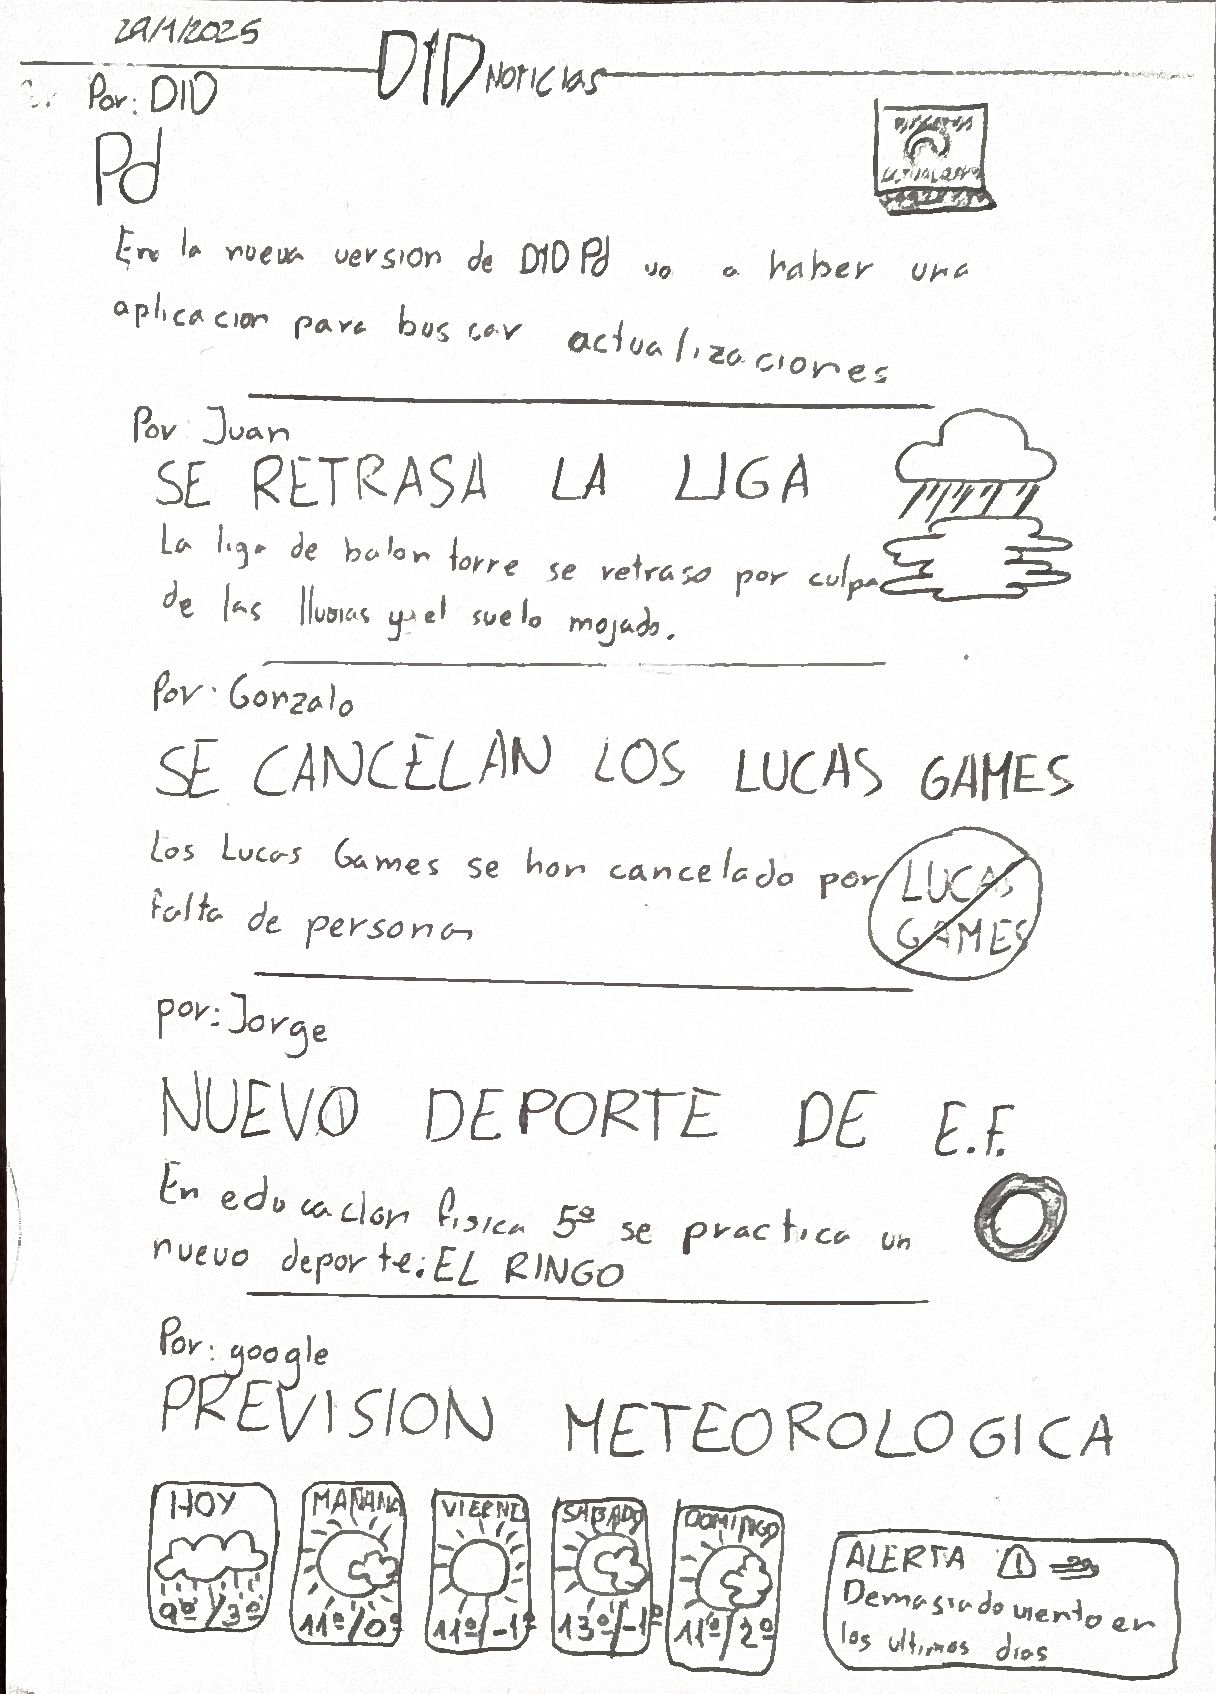 29/1/2025
D1D NOTICIAS
Por: D1D
Pd
En la nueva version de D1D Pd va a haber una
aplicacion para buscar actualizaciones
Por Juan
SE RETRASA LA LIGA
La liga de balon torre se retraso por culpa
de las lluvias y el suelo mojado.
Por: Gonzalo
SE CANCELAN LOS LUCAS GAMES
Los Lucas Games se han cancelado por
falta de personas
LUCAS
GAMES
por: Jorge
NUEVO DEPORTE DE E.F.
En educacion fisica 5º se practica un
nuevo deporte: EL RINGO
Por: google
PREVISION METEOROLOGICA
HOY
9º/3º
MAÑANA
11º/0º
VIERNES
11º/-1º
SABADO
13º/-1º
DOMINGO
11º/2º
ALERTA
Demasiado viento en
los ultimos dias